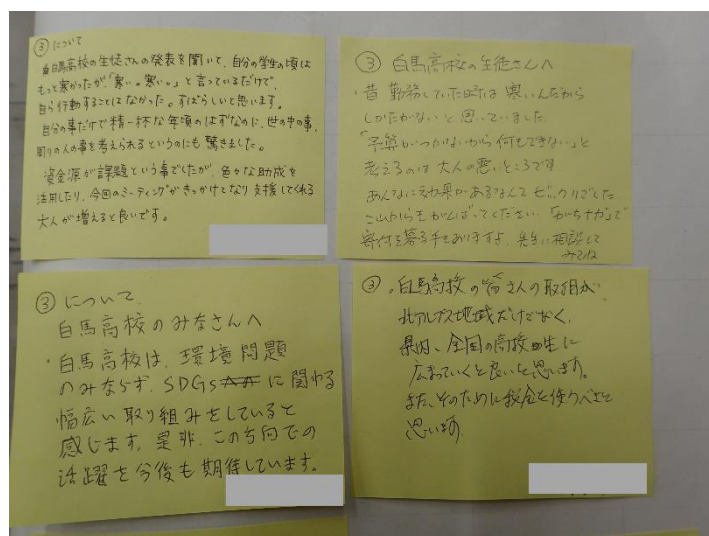 ③について
白馬高校の生徒さんの発表を聞いて、自分の学生の頃は
もっと寒かったが、「寒い。寒い。」と言っているだけで、
自ら行動することはなかった。すばらしいと思います。
自分の事だけで精一杯な年頃のはずなのに、世の中の事、
周りの人の事を考えられるというのにも驚きました。
資金源が課題という事でしたが、色々な助成を
活用したり、今回のミーティングがきっかけとなり支援してくれる
大人が増えると良いです。
③ 白馬高校の生徒さんへ
・昔 勤務していた時は 寒いんだから
しかたがないと思っていました。
「予算がつかないから何もできない」と
考えるのは大人の悪いところです
あんなに効果があるなんてビックリでした
これからもがんばってください 「がちナガ」で
寄付を募る手もありますよ、先生に相談して
みてね
③について、
白馬高校のみなさんへ
・白馬高校は、環境問題
のみならず、SDGsに関わる
幅広い取り組みをしていると
感じます。是非、この方向での
活躍を今後も期待しています。
③・白馬高校の皆さんの取組が
北アルプス地域だけでなく、
県内、全国の高校生に
広まっていくと良いと思います。
また、そのために税金を使うべきと
思います。